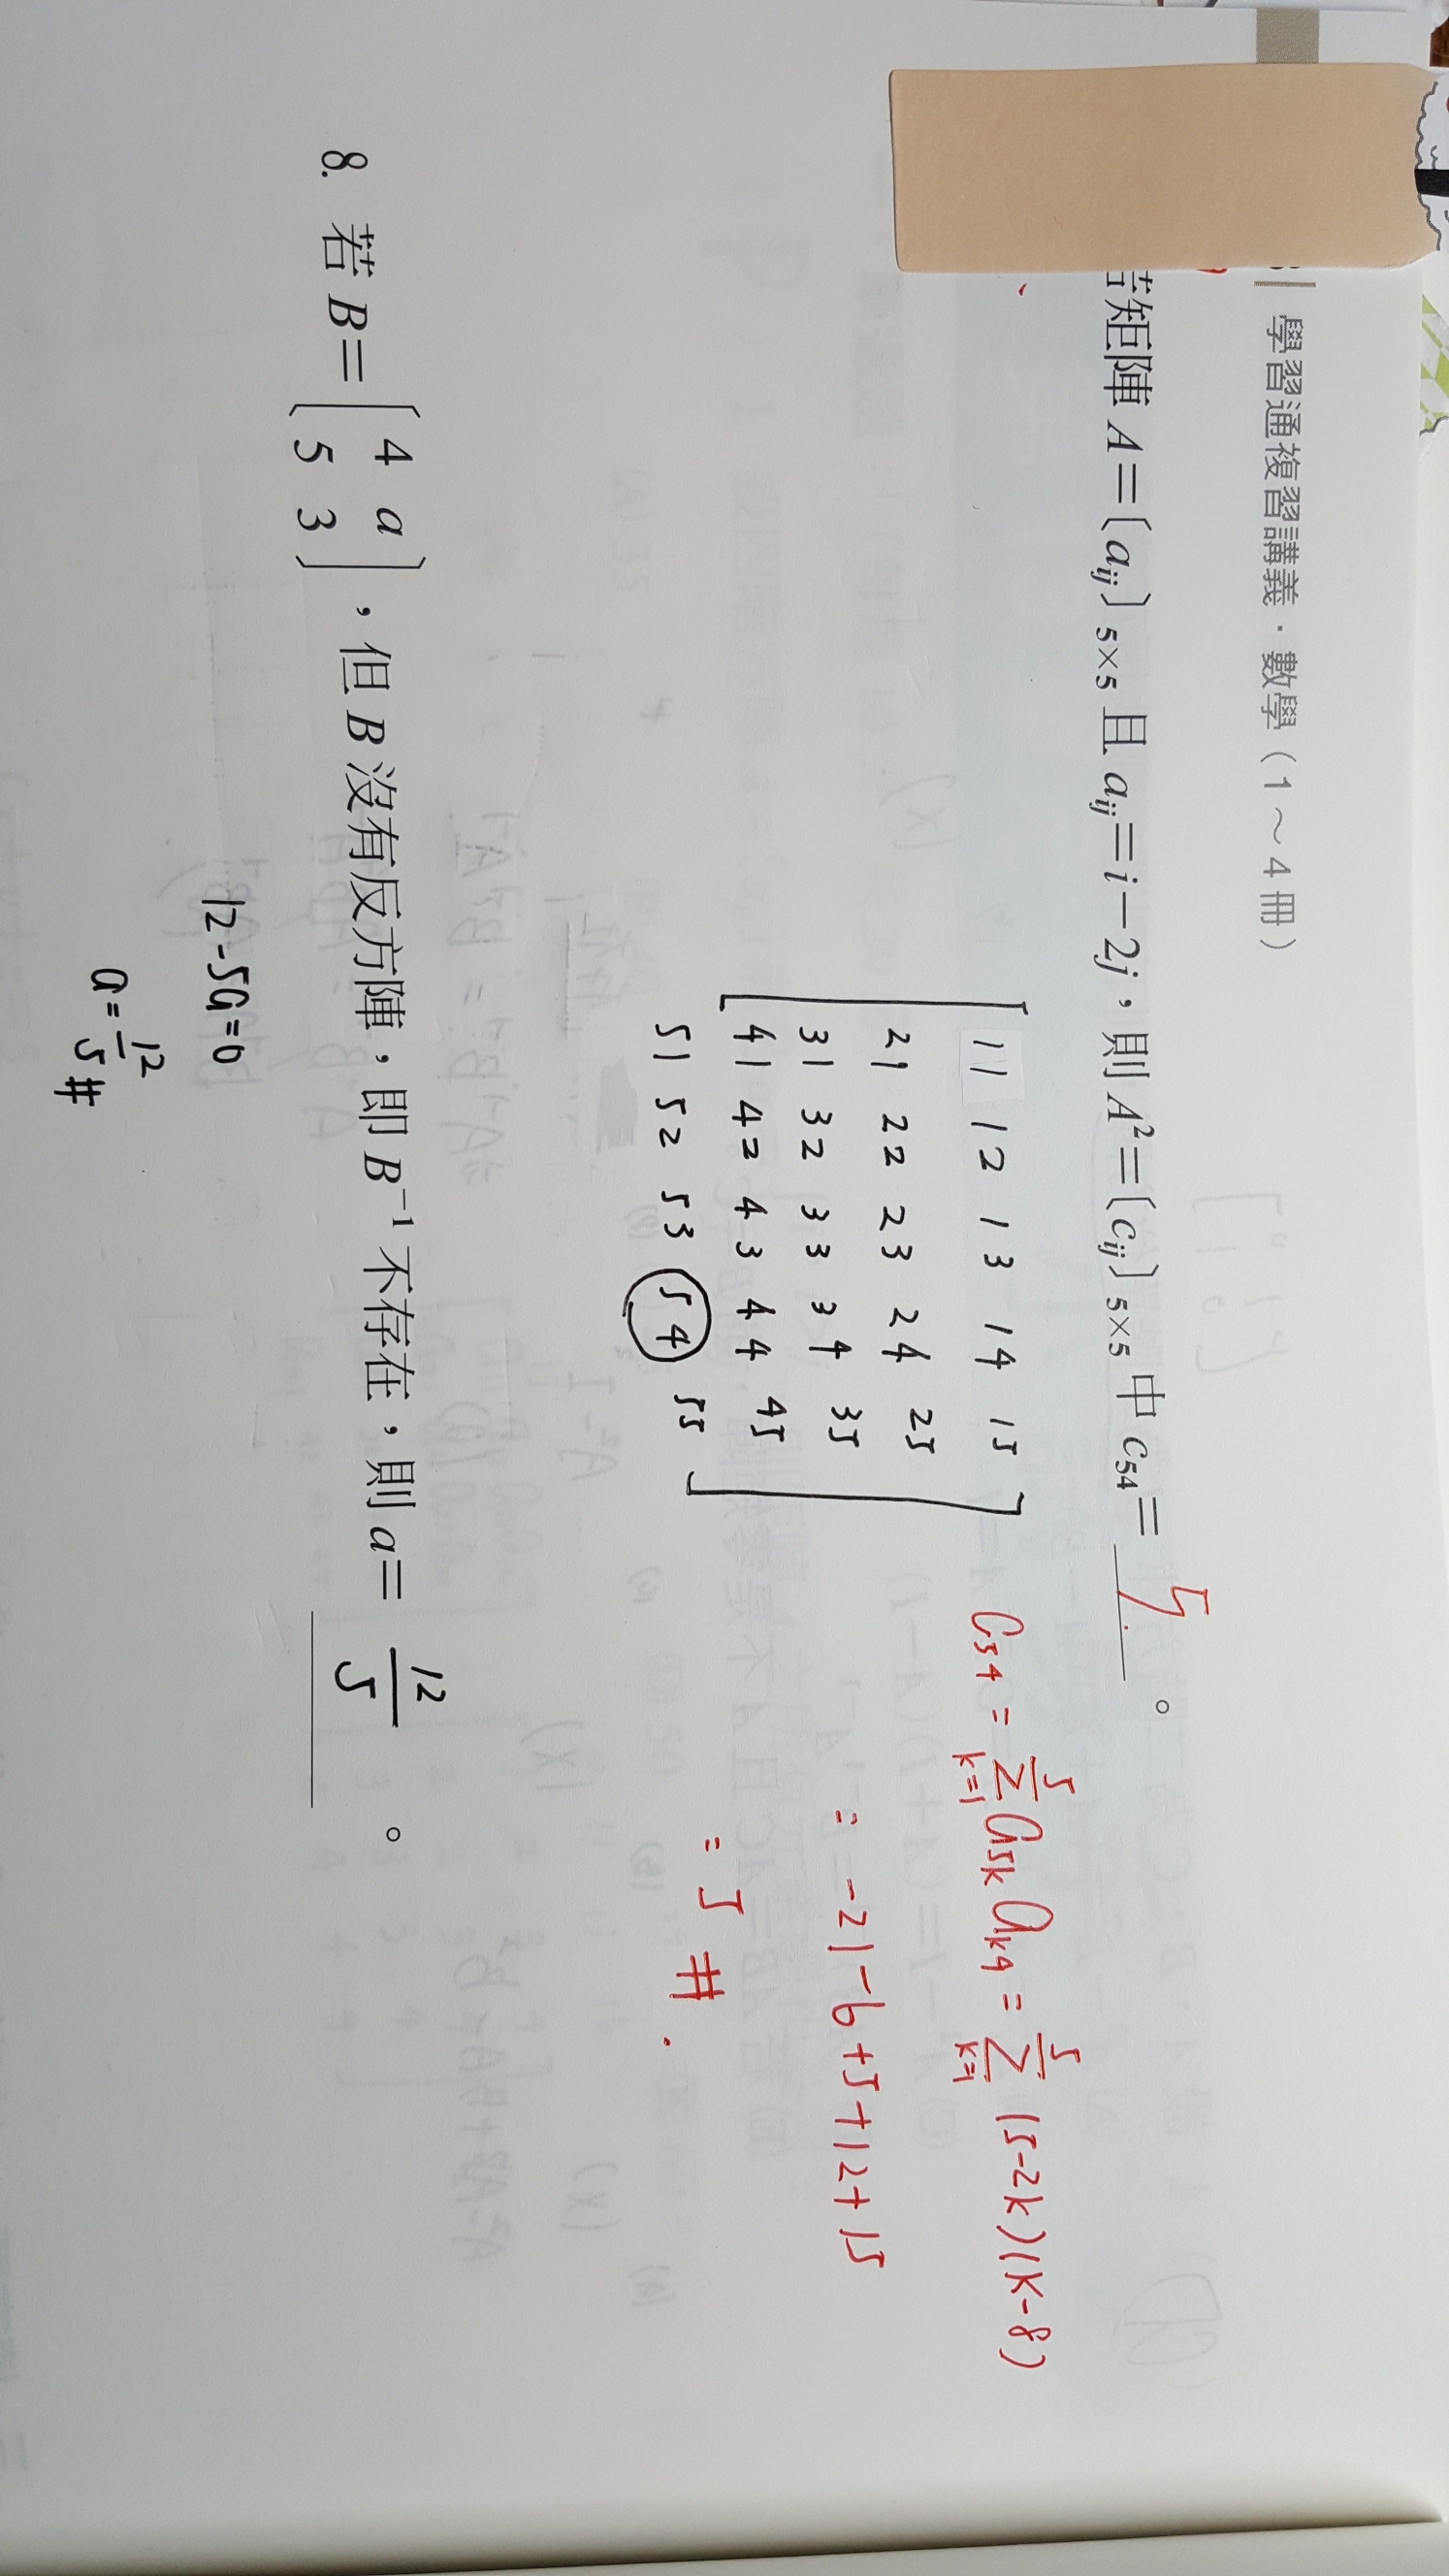 學習通複習講義．數學（1～4冊）
若矩陣 A＝〔aij〕5×5 且 aij＝i－2j，則 A²＝〔cij〕5×5 中 c54＝ 5 。
11 12 13 14 15
21 22 23 24 25
31 32 33 34 35
41 42 43 44 45
51 52 53 54 55
C54 = Σ k=1 5 a5k ak4 = Σ k=1 5 (5-2k)(k-8)
= -21-6+5+12+15
= 5 #.
8. 若 B＝[4 a
5 3]，但 B 沒有反方陣，即 B⁻¹ 不存在，則 a＝ 12/5 。
12-5a=0
a=12/5 #